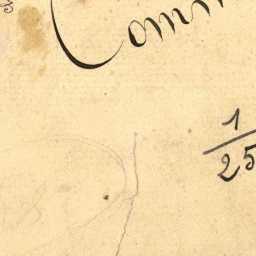 Comm
1/25